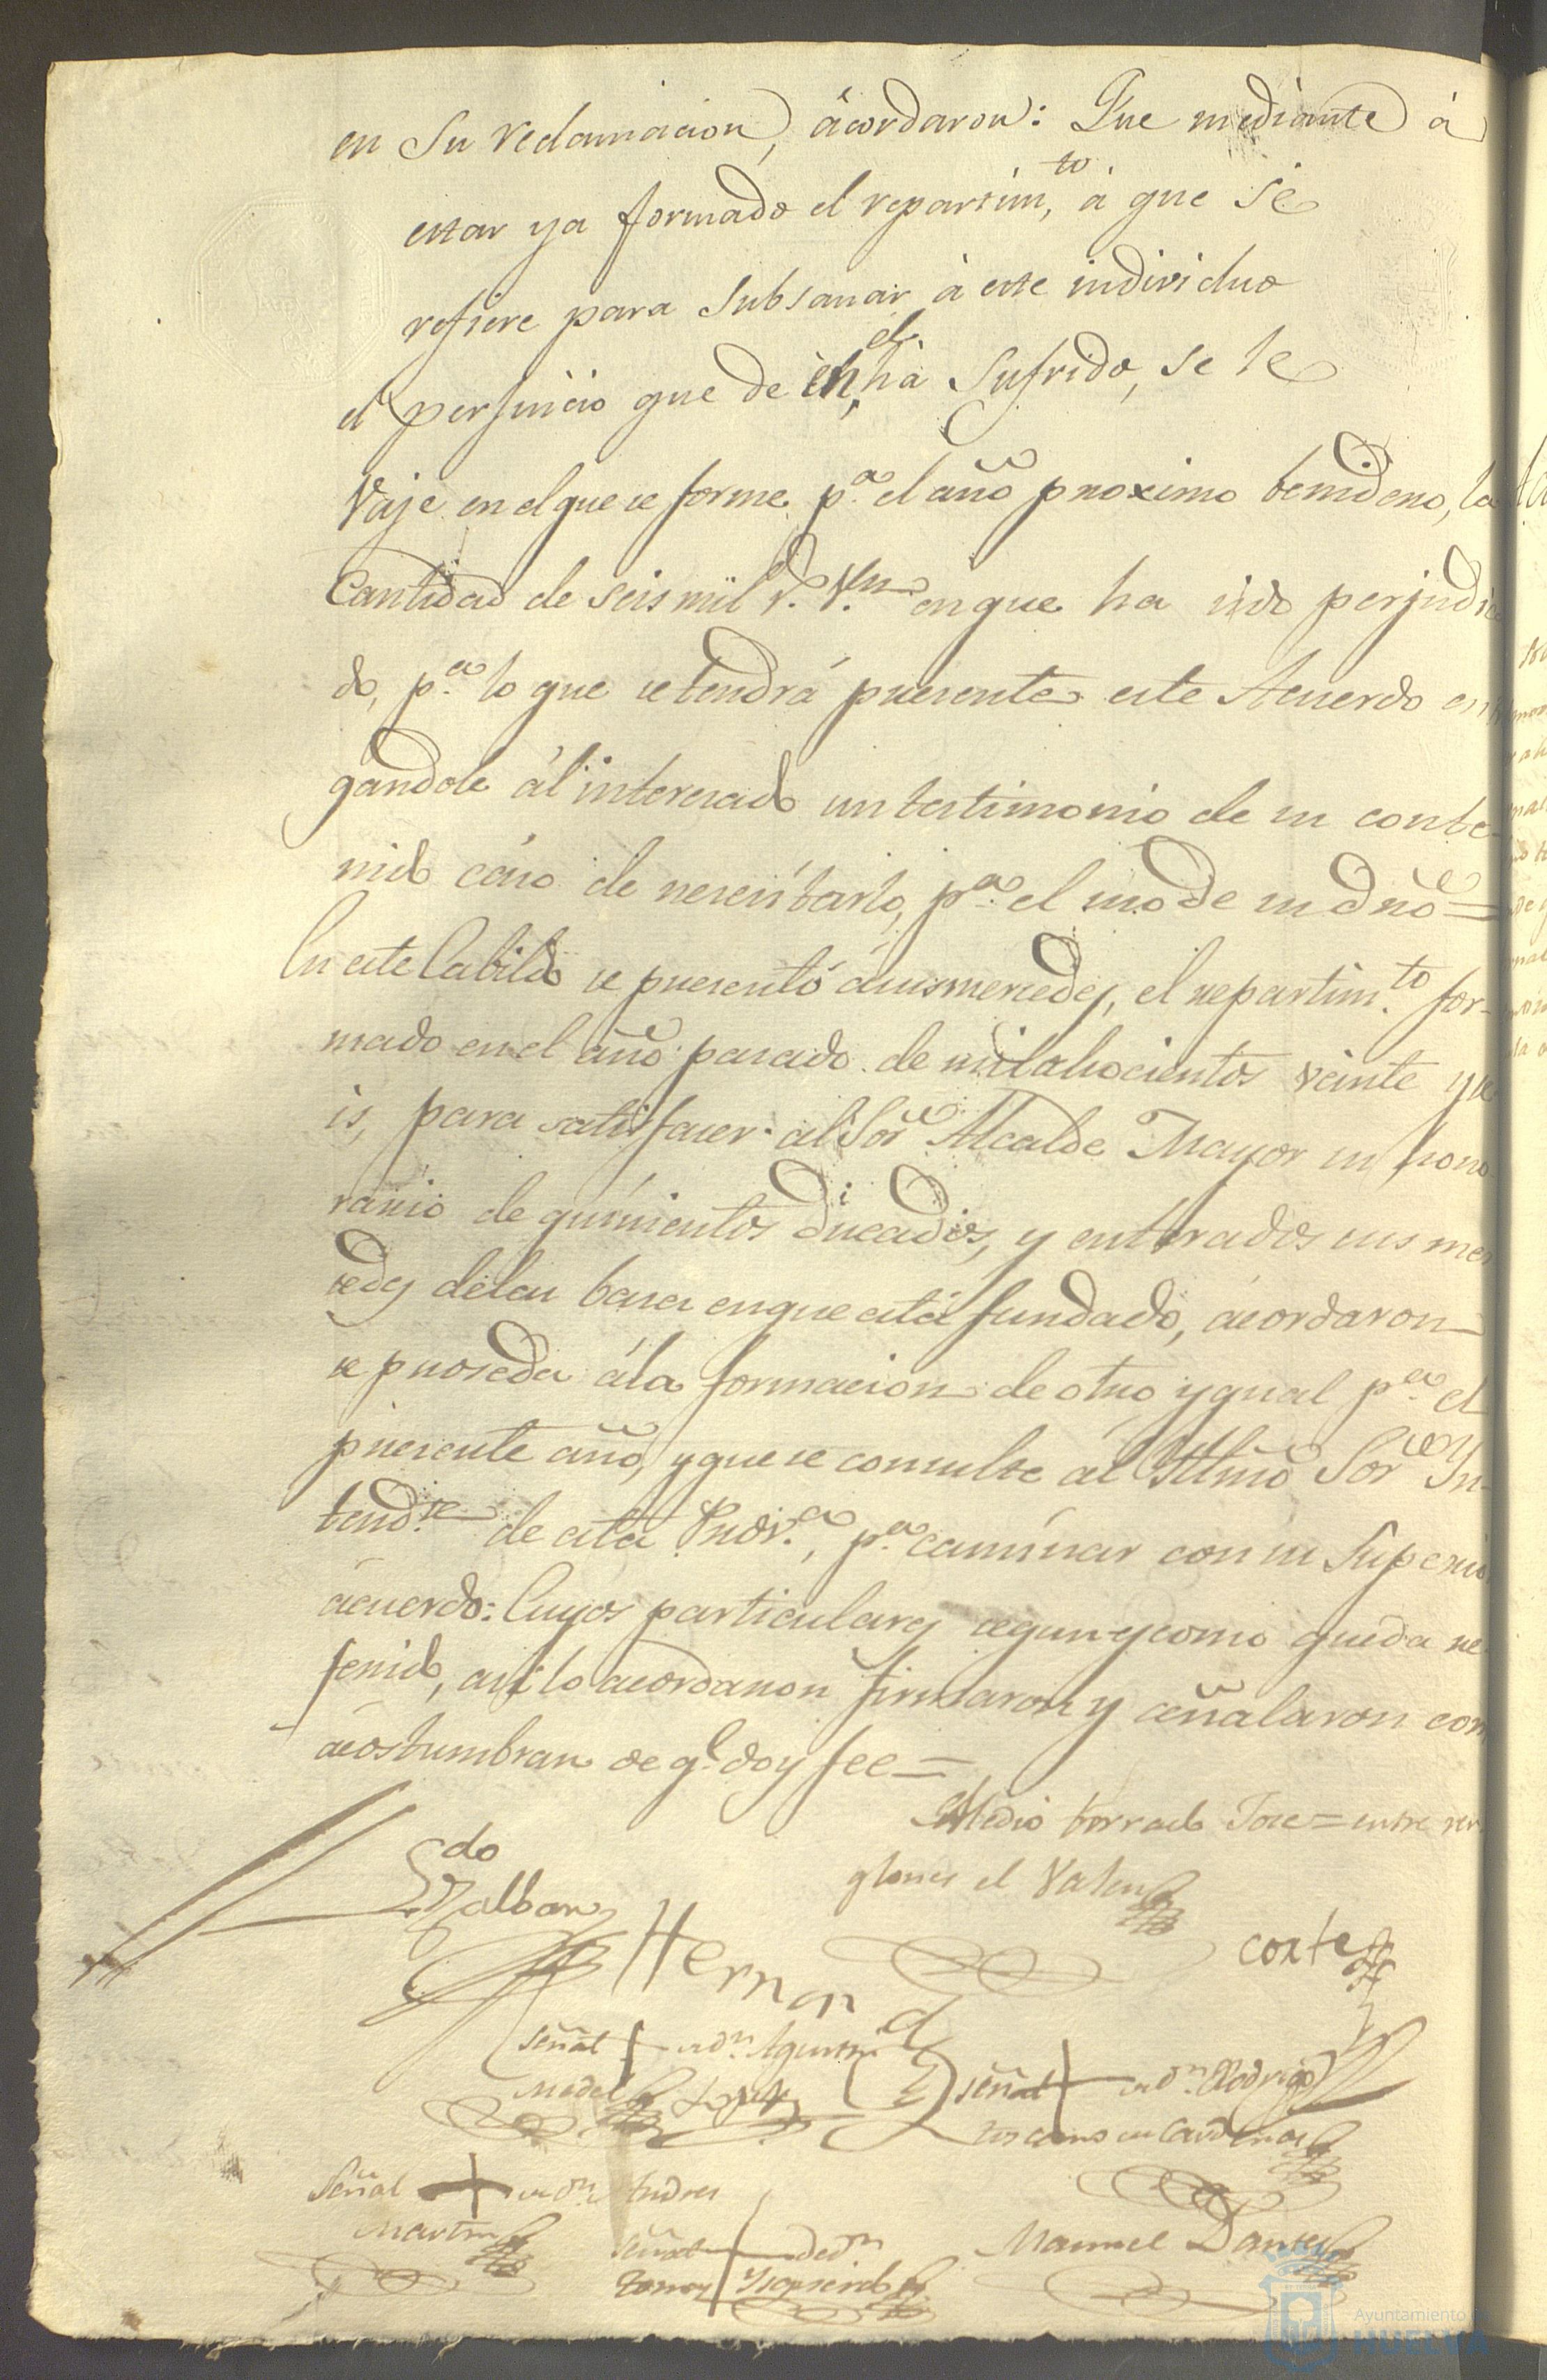 en Su reclamacion, acordaron: Que mediante á
estar ya formado el repartim.to, á que se
refiere para subsanar á este individuo
el perjuicio que de el há sufrido, se le
Vaje en el que se forme p.a el año proximo benidero, la
Cantidad de seis mil r.s V.n en que ha sido perjudica
do, p.a lo que se tendrá presente este Acuerdo
gandole ál interesado un testimonio de su conte
nido cáso de nesesitarlo, p.a el uso de su dro =
En este Cabildo se presentó á sus mersedes, el repartim.to for-
mado en el año pasado de mil ahocientos veinte y se
is, para satisfaser al Sor Alcalde Mayor su hono
rario de quinientos Ducados, y enterados sus mer
sedes de la basa en que está fundado, acordaron
se proseda á la formacion de otro ygual p.a el
presente año, y que se consulte ál Yllmo Sor Yn-
tend.te de esta Prov.a, p.a caminar con su Superior
ácuerdo: Cuyos particulares segun y como queda re
ferido, asi lo acordaron firmaron y señalaron com
ácostumbran de q.e doy fee =
Medio borrado = entre ren
glones el Vale
Ldo
Zalban
Hernand
Cortes
Señal + de dn Agustin
Lopez
Señal + de dn Rodrigo
Cardenas
Señal + de dn Andres
Martin
Señal + de dn
Tomas Ysquierdo
Manuel
Ayuntamiento de
HUELVA